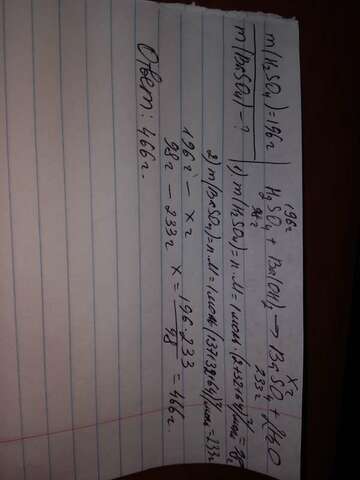 m(H₂SO₄)=196г
m(BaSO₄) - ?
196г xг
H₂SO₄ + Ba(OH)₂ → BaSO₄ + 2H₂O
98г 233г
1) m(H₂SO₄) = n·M = 1моль·(2+32+64)г/моль = 98г
2) m(BaSO₄) = n·M = 1моль(137+32+64)г/моль = 233г
196г - xг
98г - 233г x = 196·233/98 = 466г.
Ответ: 466г.